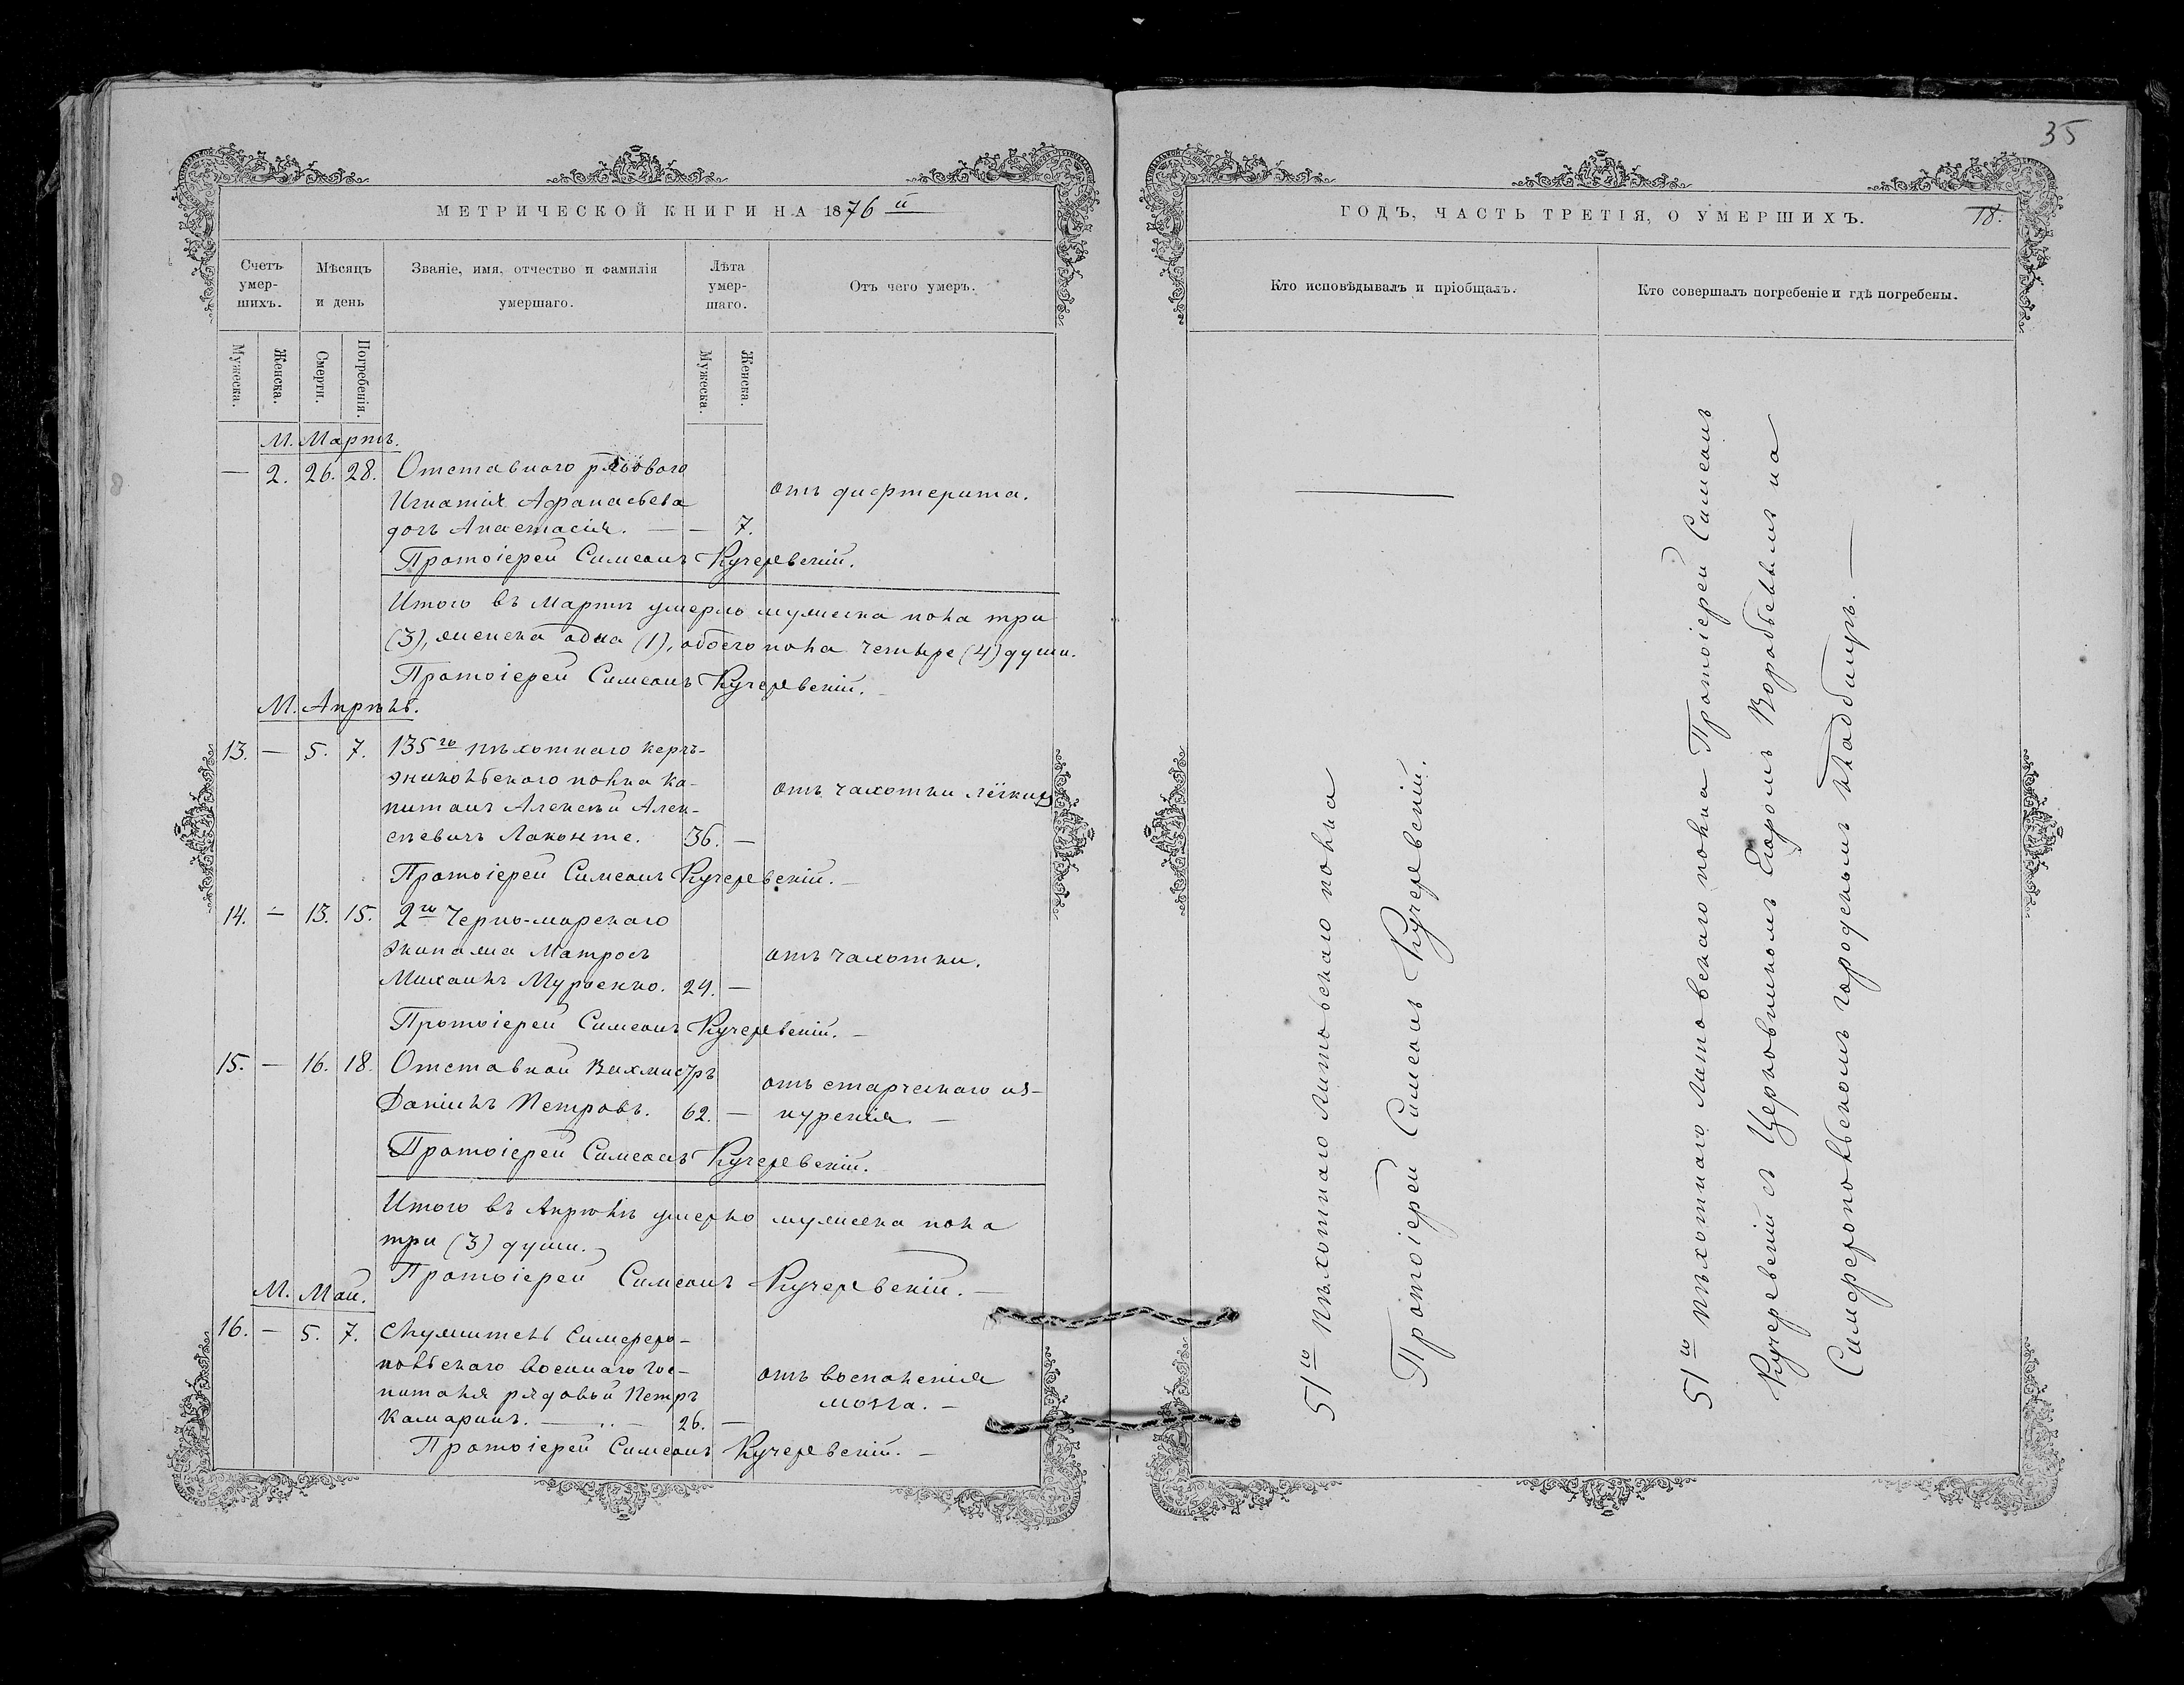 МЕТРИЧЕСКОЙ КНИГИ НА 1876 й
Счетъ умер-шихъ.
Мѣсяцъ и день
Званіе, имя, отчество и фамилія умершаго.
Лѣта умер-шаго.
Отъ чего умеръ.
Мужеска.
Женска.
Смерти.
Погребенія.
Мужеска.
Женска.
М. Мартъ.
— 2. 26. 28. Отставного рядового
Игнатія Афанасьева
отъ дифтерита.
дочь Анастасія. — — 7.
Протоіерей Симеонъ Кучеревскій.
Итого въ Мартѣ умерло мужеска пола три
(3), женска одна (1), обоего пола четыре (4) души.
Протоіерей Симеонъ Кучеревскій.
М. Апрѣль.
13. — 5. 7. 135го пѣхотнаго керчь-
эникольского полка Ка-
питанъ Алексѣй Алек-
отъ чахотки лёгкихъ
сѣевичъ Лаконте. 36. —
Протоіерей Симеонъ Кучеревскій. —
14. — 13. 15. 2го Черно-морскаго
экипажа Матросъ
отъ чахотки.
Михаилъ Мураенко. 24. —
Протоіерей Симеонъ Кучеревскій. —
15. — 16. 18. Отставной Вахмистръ
отъ старческаго из-
Даніилъ Петровъ. 62. —
нуренія. —
Протоіерей Симеонъ Кучеревскій.
Итого въ Апрѣлѣ умерло мужеска пола
три (3) души.
Протоіерей Симеонъ Кучеревскій. —
М. Май.
16. — 5. 7. Служитель Симферо-
польскаго военнаго гос-
отъ воспаленія
питаля рядовый Петръ
мозга. —
Камаринъ. — 26. —
Протоіерей Симеонъ Кучеревскій. —
35
ГОДЪ, ЧАСТЬ ТРЕТІЯ, О УМЕРШИХЪ.
18.
Кто исповѣдывалъ и пріобщалъ.
Кто совершалъ погребеніе и гдѣ погребены.
51го пѣхотнаго Литовскаго полка
Протоіерей Симеонъ Кучеревскій.
51го пѣхотнаго Литовскаго полка Протоіерей Симеонъ
Кучеревскій съ Церковникомъ Егоромъ Воробьевымъ на
Симферопольскомъ городскомъ кладбищѣ. —